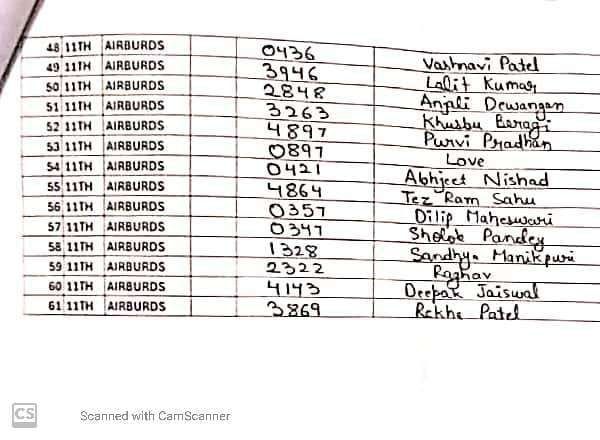 48 11TH AIRBURDS 0436 Vashnavi Patel
49 11TH AIRBURDS 3946 Lalit Kumar
50 11TH AIRBURDS 2848 Anjali Dewangan
51 11TH AIRBURDS 3263 Khusbu Beragi
52 11TH AIRBURDS 4897 Purvi Pradhan
53 11TH AIRBURDS 0897 Love
54 11TH AIRBURDS 0421 Abhjeet Nishad
55 11TH AIRBURDS 4864 Tez Ram Sahu
56 11TH AIRBURDS 0357 Dilip Maheswari
57 11TH AIRBURDS 0347 Pandey
58 11TH AIRBURDS 1328 Sandhya Manikpuri
59 11TH AIRBURDS 2322 Raghav
60 11TH AIRBURDS 4143 Deepak Jaiswal
61 11TH AIRBURDS 3869 Rekha Patel
CS Scanned with CamScanner